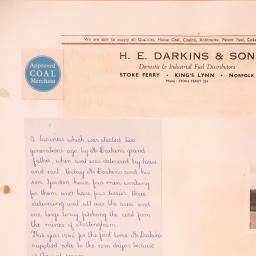 We are able to supply all Qualities, House Coal, Coalite, Anthracite, Patent Fuel, Coke
Approved
COAL
Merchant
H. E. DARKINS & SON
Domestic & Industrial Fuel Distributors
STOKE FERRY • KING'S LYNN • NORFOLK
Phone: STOKE FERRY 251
A business which was started two
generations ago by Mr Darkins grand
father, when coal was delivered by horse
and cart. Today Mr Darkins and his
son Gordon have four men working
for them and have four lorries, three
delivering coal all over the area and
one large lorry fetching the coal from
the mines of Nottingham.
This year was for the first time Mr Darkins
supplied coke to the corn dryers because